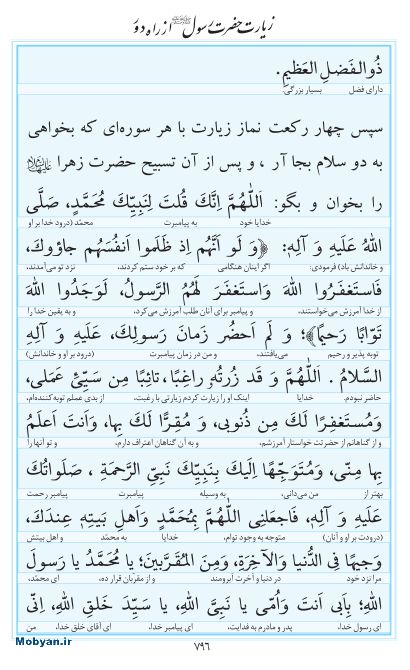 زیارت حضرت رسول ﷺ از راه دور
ذُوالْفَضلِ العَظیمِ.
دارای فضل بسیار بزرگی.
سپس چهار رکعت نماز زیارت با هر سوره‌ای که بخواهی
به دو سلام بجا آر ، و پس از آن تسبیح حضرت زهرا علیهاالسلام
را بخوان و بگو: اَللّٰهُمَّ اِنَّکَ قُلتَ لِنَبِیِّکَ مُحَمَّدٍ، صَلَّی
خدایا خود به پیامبرت محمّد، (درود خدا بر او
اللهُ عَلَیهِ وَ آلِهِ: ﴿وَ لَو اَنَّهُم اِذ ظَلَموا اَنفُسَهُم جاؤوکَ،
و خاندانش باد) فرمودی: اگر اینان هنگامی که بر خود ستم کردند، نزد تو می‌آمدند،
فَاستَغفَرُوا اللهَ وَاستَغفَرَ لَهُمُ الرَّسولُ، لَوَجَدُوا اللهَ
از خدا آمرزش می‌خواستند، و پیامبر برای آنان طلب آمرزش می‌کرد، و به یقین خدا را
تَوّابًا رَحیمًا﴾؛ وَ لَم اَحضُر زَمانَ رَسولِکَ، عَلَیهِ وَ آلِهِ
توبه پذیر و رحیم می‌یافتند، و من در زمان پیامبرت (درود بر او و خاندانش)
السَّلامُ . اَللّٰهُمَّ وَ قَد زُرتُهُ راغِبًا، تائِبًا مِن سَیِّئِ عَمَلی،
حاضر نبودم. خدایا اینک او را زیارت کردم زیارتی با رغبت، از بدی عملم توبه کننده‌ام،
وَمُستَغفِرًا لَکَ مِن ذُنوبی، وَ مُقِرًّا لَکَ بِها، وَاَنتَ اَعلَمُ
و از گناهانم از حضرتت خواستار آمرزشم، و به آن گناهان اعتراف دارم، و تو آنها را
بِها مِنّی، وَمُتَوَجِّهًا اِلَیکَ بِنَبِیِّکَ نَبِیِّ الرَّحمَةِ ، صَلَواتُکَ
بهتر از من می‌دانی، به وسیله پیامبرت پیامبر رحمت
عَلَیهِ وَ آلِهِ، فَاجعَلنِی اللّٰهُمَّ بِمُحَمَّدٍ وَاَهلِ بَیتِهِ عِندَکَ،
(درودت بر او و آنان) متوجه به وجود توام، خدایا به محمّد و اهل بیتش
وَجیهًا فِی الدُّنیا وَالآخِرَةِ، وَمِنَ المُقَرَّبینَ؛ یا مُحَمَّدُ یا رَسولَ
مرا نزد خود در دنیا و آخرت آبرومند و از مقربان قرار ده، ای محمّد،
اللهِ؛ بِاَبی اَنتَ وَاُمّی یا نَبِیَّ اللهِ، یا سَیِّدَ خَلقِ اللهِ، اِنّی
ای رسول خدا، پدر و مادرم به فدایت، ای پیامبر خدا، ای آقای خلق خدا، من
۷۹۶
Mobyan.ir